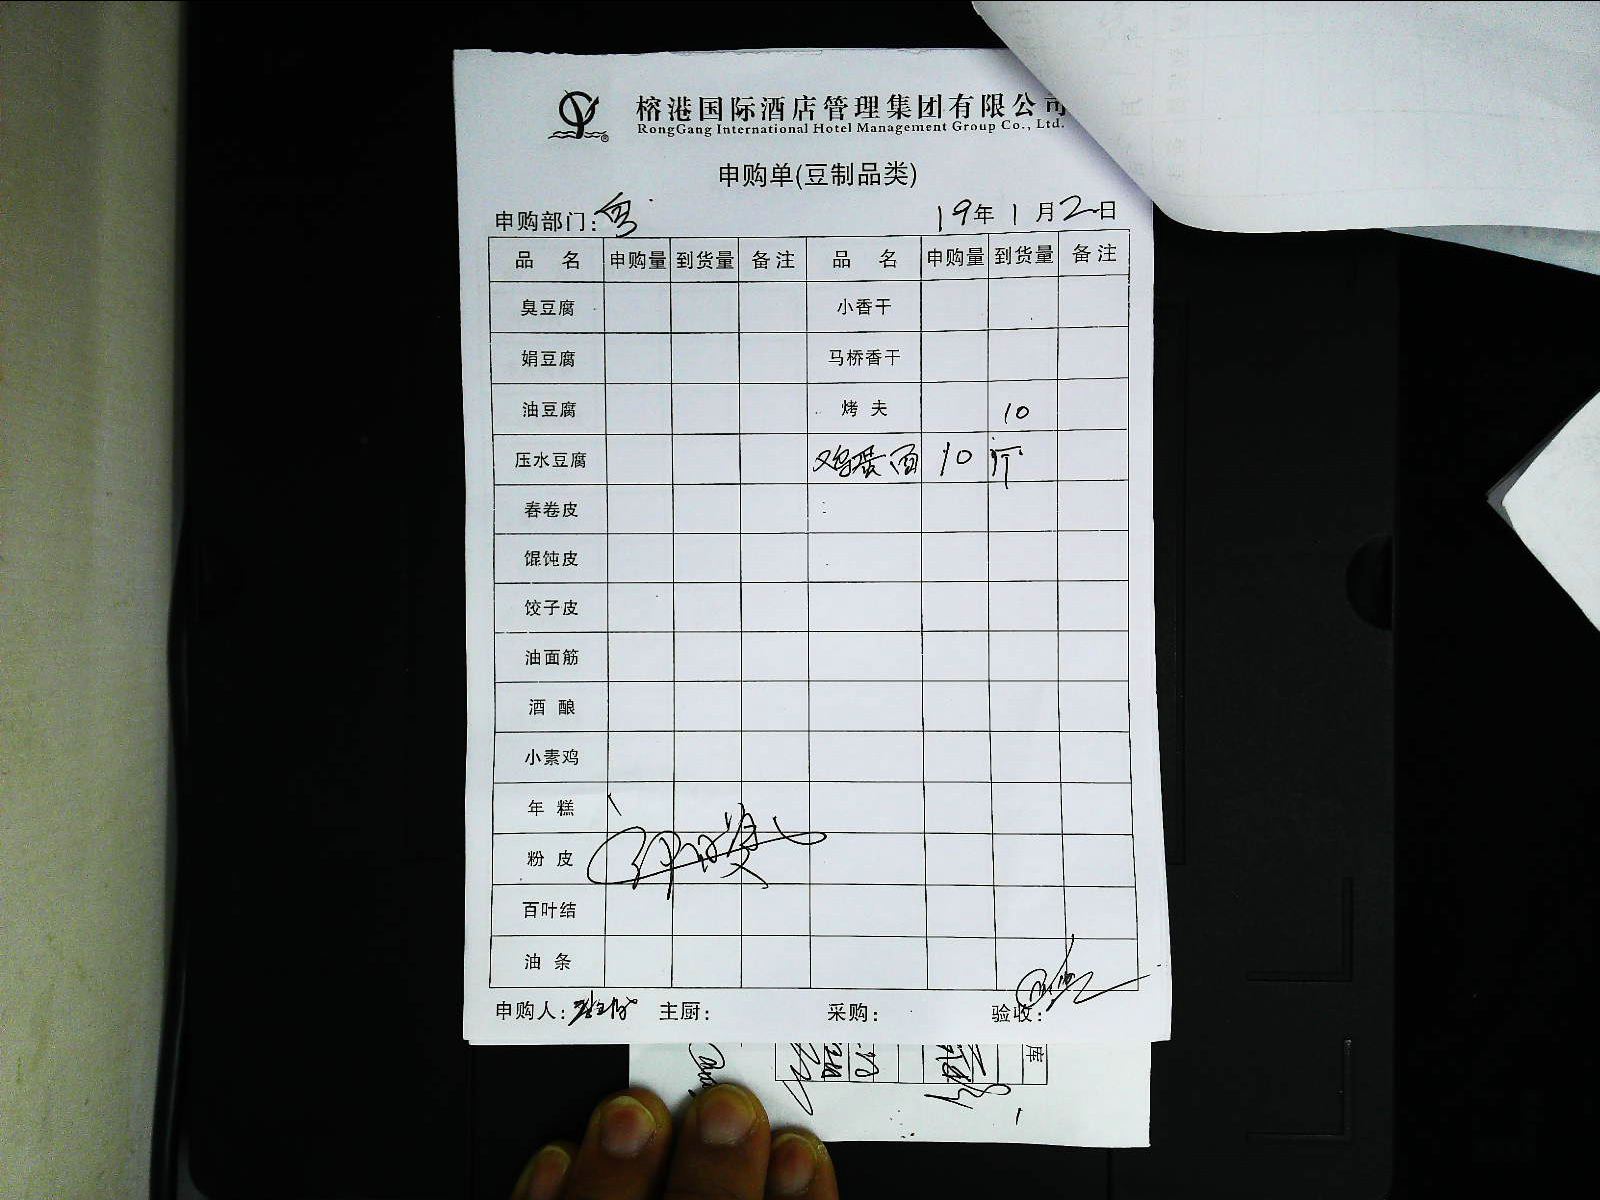 榕港国际酒店管理集团有限公司
RongGang International Hotel Management Group Co., Ltd.
申购单(豆制品类)
申购部门: 19年1月2日
品 名 申购量 到货量 备注 品 名 申购量 到货量 备注
臭豆腐 小香干
娟豆腐 马桥香干
油豆腐 烤 夫 10
压水豆腐 鸡蛋面 10 斤
春卷皮
馄饨皮
饺子皮
油面筋
酒 酿
小素鸡
年 糕
粉 皮
百叶结
油 条
申购人: 主厨: 采购: 验收:
库